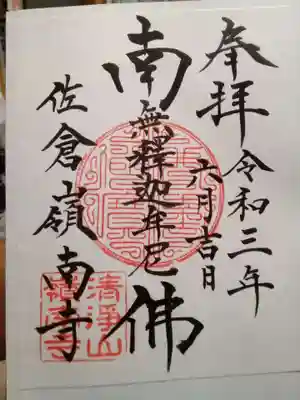 奉拝
令和三年
六月吉日
南無釋迦牟尼佛
佐倉嶺南寺
清浄山
嶺南寺